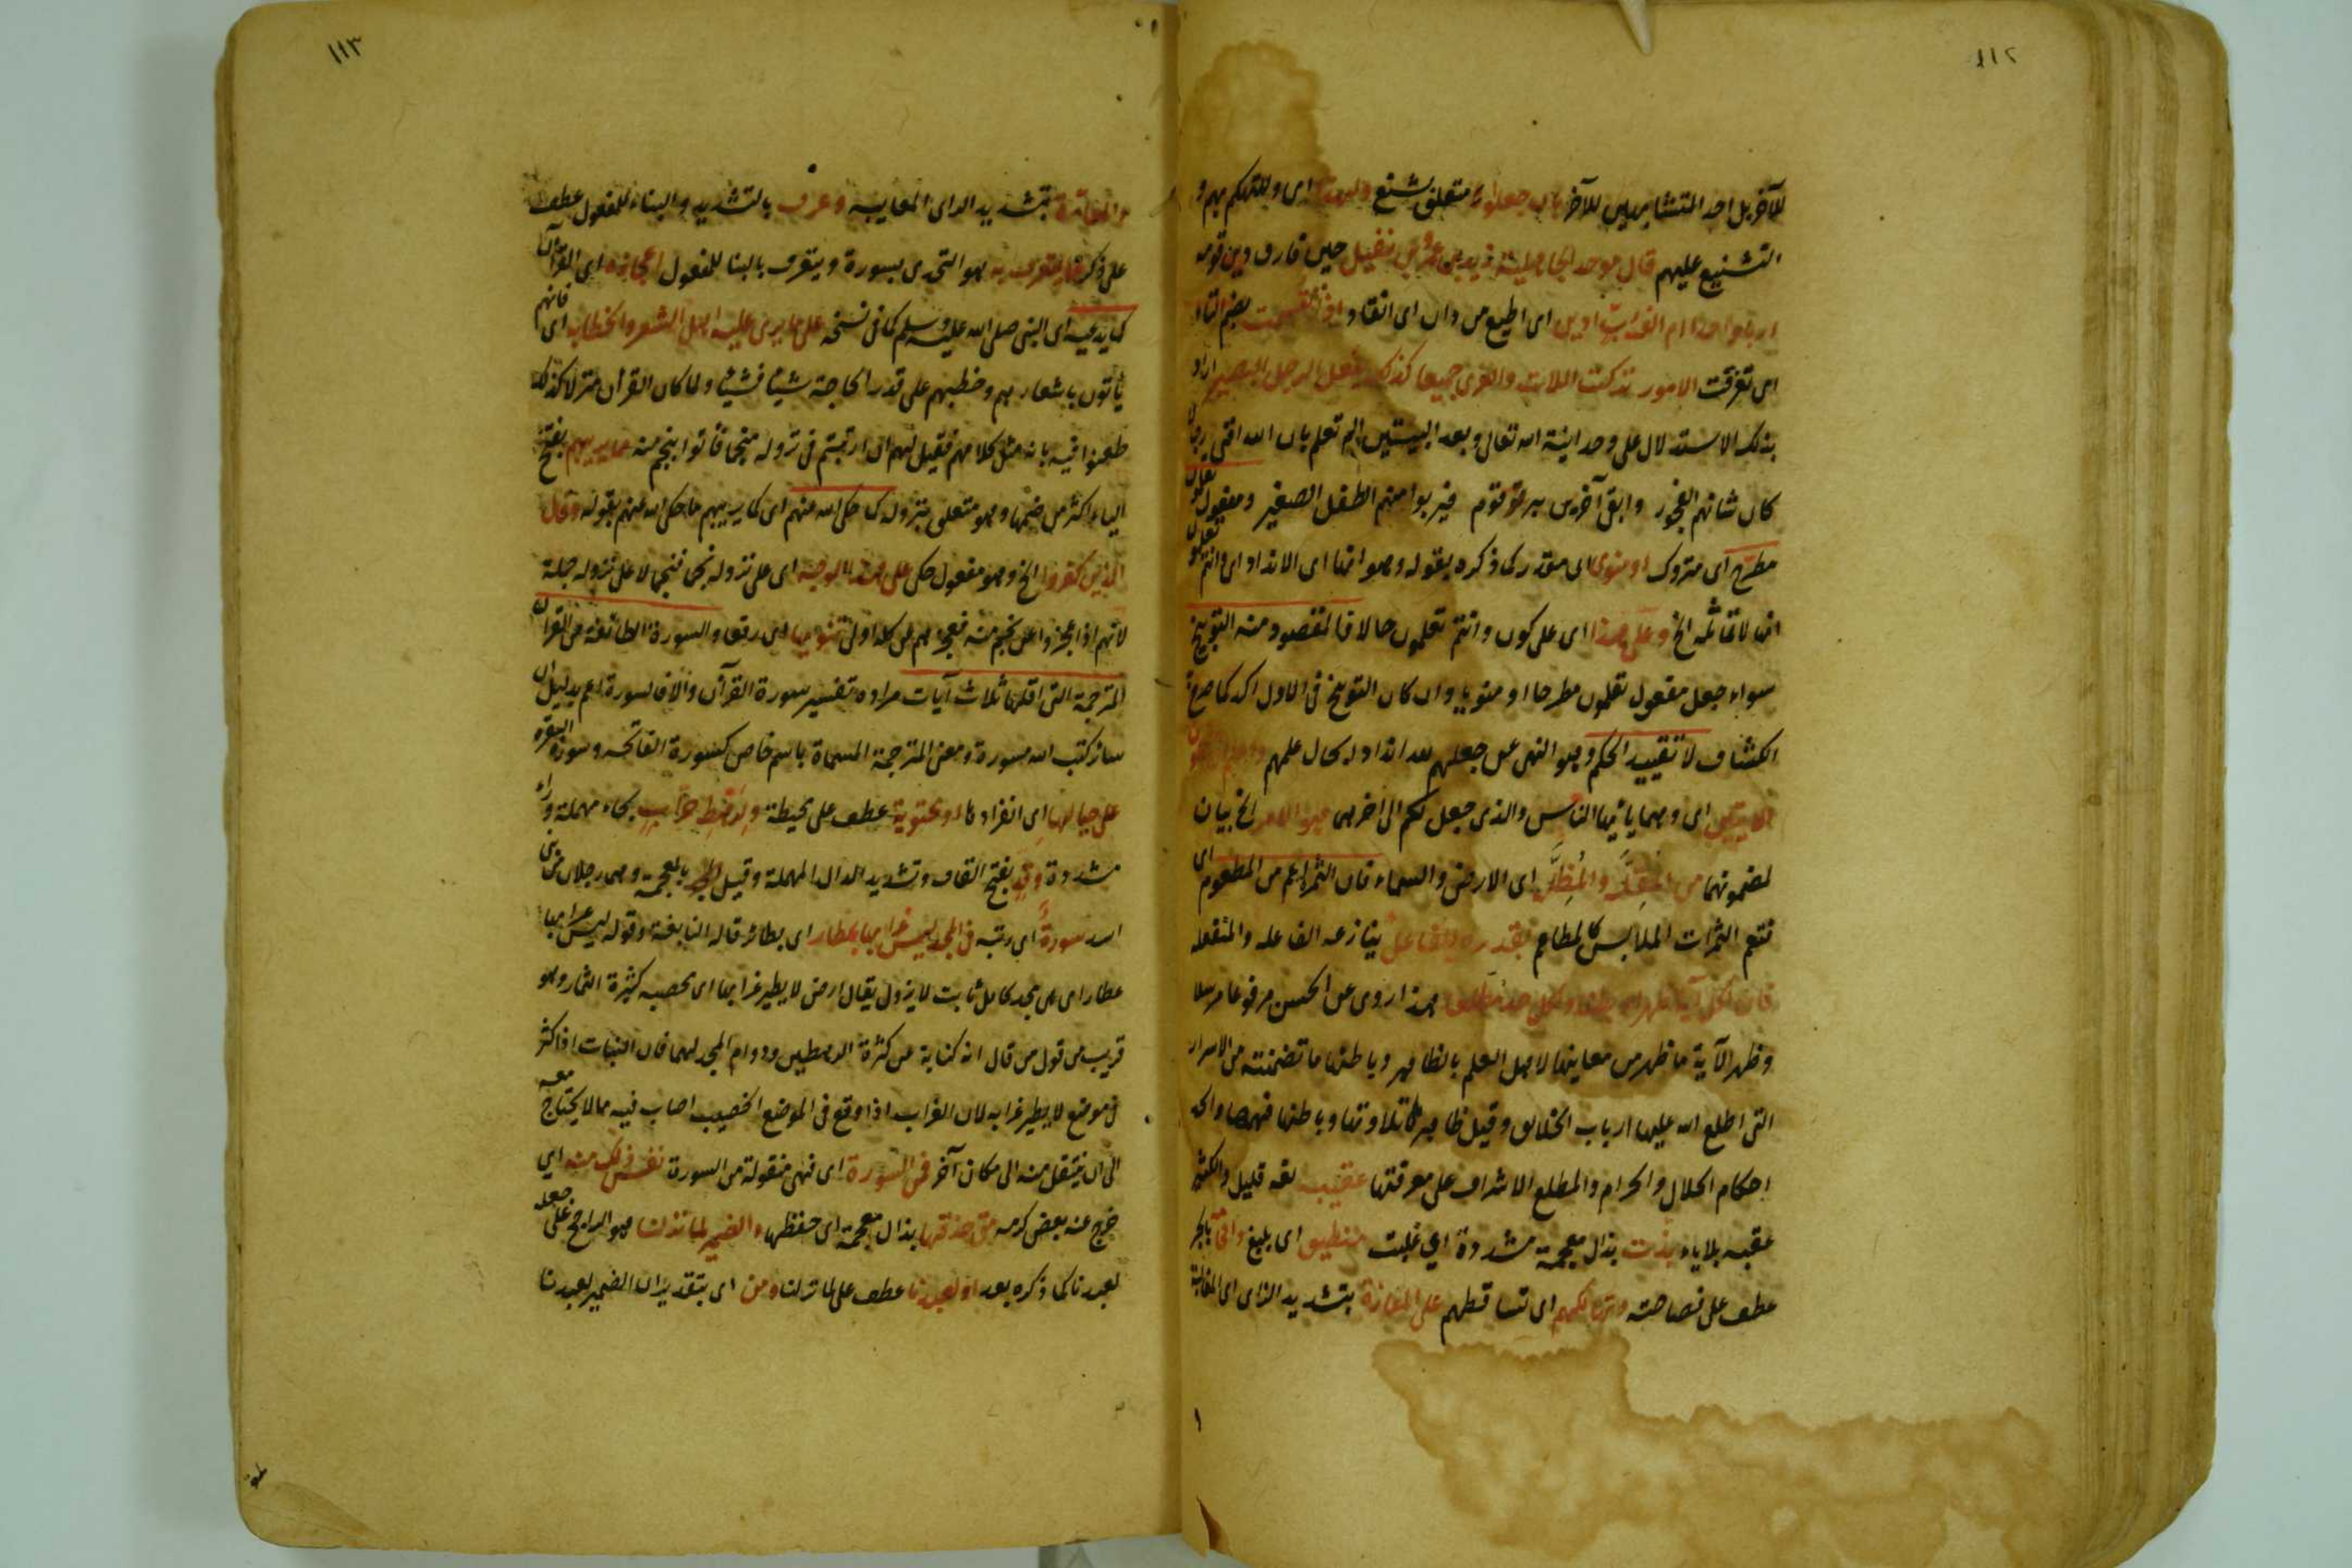 ١١٢
للآخر بل احد المتشابهين للآخر بان جعلوا متعلق بشنع ولهذا اى وللتهكم بهم و
التشنيع عليهم قال موحد الجاهلية زيد بن عمرو بن نفيل حين فارق دين قومه
اربا واحدا ام الف رب ادين اى اطيع من دان اى انقاد اذا تقسمت بضم التاء
اى تفرقت الامور تركت اللات والعزى جميعا كذلك يفعل الرجل البصير اراد
بذلك الاستدلال على وحدانية الله تعالى وبعد البيتين الم تعلم بان الله افنى رجالا
كان شانهم الفجور وابقى آخرين ببر قوم فيربو منهم الطفل الصغير ومفعول تعلمون
مطرح اى متروك او منوى اى مقدر كما ذكره بقوله وهو انها اى الانداد اى وانتم تعلمون
انها لا تماثله الخ وعلى هذا اى على كون وانتم تعلمون حالا فالمقصود منه التوبيخ
سواء جعل مفعول تعلمون مطرحا او منويا وان كان التوبيخ فى الاول اكد كما صرح
الكشاف لا تقييد الحكم وهو النهى عن جعلهم لله اندادا بحال علمهم
الآيتين اى وهما يا ايها الناس والذى جعل لكم الى اخرهما هو الامر الخ بيان
لمضمونهما من المقلة والمظلة اى الارض والسماء فان الثمر اعم من المطعوم اى
فتعم الثمرات الملابس كالمطاعم بقدرة الفاعل يتنازعه الفاعلة والمنفعلة
فان لكل آية ظهرا وبطنا ولكل حد مطلعا هذا روى عن الحسن مرفوعا مرسلا
وظهر الآية ما ظهر من معانيها لاهل العلم بالظاهر وباطنها ما تضمنته من الاسرار
التى اطلع الله عليها ارباب الحقائق وقيل ظاهرها تلاوتها وباطنها فهمها والحد
احكام الحلال والحرام والمطلع الاشراف على معرفتها عقيب لغة قليل والكثير
عقبه بلا ياء بذت بذال معجمة مشددة اى غلبت منطيق اى بليغ بالجر
عطف على فصاحته وتهالكهم اى تساقطهم على المعازة بتشديد الزاى اى المغالبة
١١٣
والمعارة بتشديد الراى المعايبة وعرف بالتشديد والبناء للمفعول عطف
على ذكر ما يتعرف به هو التحدى بسورة ويتعرف بالبنا للمفعول اعجازه اى القرآن
كما يدعيه اى النبى صلى الله عليه وسلم كما فى نسخه على ما يرى عليه اهل الشعر والخطابه اى فانهم
يأتون باشعارهم وخطبهم على قدر الحاجة شيئا فشيئا ولما كان القرآن منزلا كذلك
طعنوا فيه بانه مثل كلامهم فقيل لهم ان ارتبتم فى نزوله منجما فأتوا بنجم منه مما يريبهم بفتح
الياء اكثر من ضمها وهو متعلق بنزوله كما حكى الله عنهم اى كما يريبهم ما حكى الله عنهم بقوله وقال
الذين كفروا الخ وهو مفعول حكى على هذا الوجه اى على نزوله نجما فنجما لا على نزوله جملة
لانهم اذا عجزوا عن نجم منه فعجزهم عن كله اولى تنويها اى رفعا والسورة الطائفة من القرآن
المترجمة التى اقلها ثلاث آيات مراده تفسير سورة القرآن والا فالسورة اعم بدليل ان
سائر كتب الله مسورة ومعنى المترجمة المسماة باسم خاص كسورة الفاتحه وسورة البقره
على حيالها اى انفرادها او محتوية عطف على محيطة ولرهط حراب بحاء مهملة وراء
مشددة وقد بفتح القاف وتشديد الدال المهملة وقيل بالمعجمة وهما رجلان من بنى
اسد سورة اى رتبه فى المجد ليس غرابها بمطار اى بطائر قاله النابغة وقوله ليس غرابها
بمطار اى هى مجد كامل ثابت لا يزول يقال ارض لا يطير غرابها اى خصبه كثيرة الثمار وهو
قريب من قول من قال انه كناية عن كثرة الرهطين ودوام المجد لهما فان النبات اذا كثر
فى موضع لا يطير غرابه لان الغراب اذا وقع فى الموضع الخصيب اصاب فيه ما لا يحتاج معه
الى ان ينتقل منه الى مكان آخر من السورة اى فهى منقولة من السورة نفس ذلك منه اى
فرج عنه بعض كربه متى حذقها بذال معجمة اى حفظها والضمير لما نزلنا هو الراجح على جعله
لعبدنا كما ذكره بعد او لعبدنا عطف على لما نزلنا ومن اى بتقدير ان الضمير لعبدنا